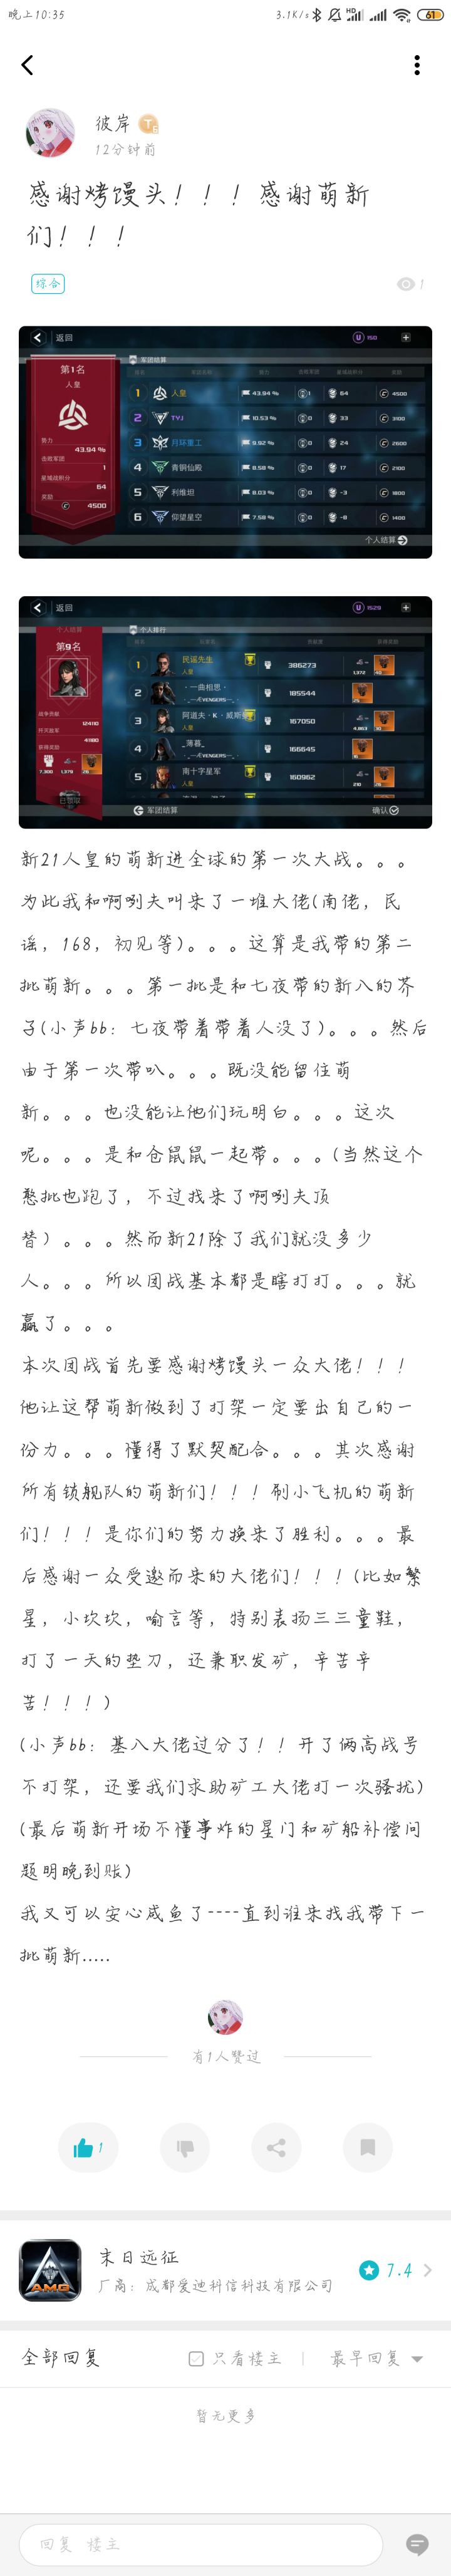 晚上10:35
3.1K/s
HD
61
彼岸
12分钟前
感谢烤馒头！！！感谢萌新
们！！！
综合
1
返回
150
第1名
人皇
势力
43.94 %
击败军团
1
星域战积分
64
奖励
4500
军团结算
1 人皇 43.94 % 1 64 4500
2 TYJ 10.53 % 0 33 3100
3 月环重工 9.92 % 0 24 2600
4 青铜仙殿 8.58 % 0 17 2100
5 利维坦 8.03 % 0 -3 1800
6 仰望星空 7.58 % 0 -8 1400
个人结算
返回
1529
个人结算
第9名
战争贡献
124110
歼灭敌军
41180
获得奖励
7,300 1,379
已领取
个人排行
1 民谣先生 人皇 386273 1,372
2 一曲相思 185544
3 阿道夫·K·威斯 人皇 167050 4,863
4 _薄暮_ 166645
5 南十字星军 人皇 160962 210
军团结算
确认
新21人皇的萌新进全球的第一次大战。。。
为此我和啊咧夫叫来了一堆大佬(南佬，民
谣，168，初见等)。。。这算是我带的第二
批萌新。。。第一批是和七夜带的新八的芥
子(小声bb：七夜带着带着人没了)。。。然后
由于第一次带叭。。。既没能留住萌
新。。。也没能让他们玩明白。。。这次
呢。。。是和仓鼠鼠一起带。。。(当然这个
憨批也跑了，不过找来了啊咧夫顶
替）。。。然而新21除了我们就没多少
人。。。所以团战基本都是瞎打打。。。就
赢了。。。
本次团战首先要感谢烤馒头一众大佬！！！
他让这帮萌新做到了打架一定要出自己的一
份力。。。懂得了默契配合。。。其次感谢
所有锁舰队的萌新们！！！刷小飞机的萌新
们！！！是你们的努力换来了胜利。。。最
后感谢一众受邀而来的大佬们！！！(比如繁
星，小坎坎，喻言等，特别表扬三三童鞋，
打了一天的垫刀，还兼职发矿，辛苦辛
苦！！！)
(小声bb：基八大佬过分了！！开了俩高战号
不打架，还要我们求助矿工大佬打一次骚扰)
(最后萌新开场不懂事炸的星门和矿船补偿问
题明晚到账)
我又可以安心咸鱼了----直到谁来找我带下一
批萌新.....
有1人赞过
1
AMG
末日远征
厂商：成都爱迪科信科技有限公司
7.4
全部回复
只看楼主
最早回复
暂无更多
回复 楼主